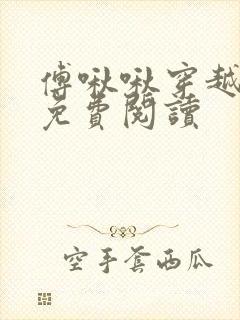 傅啾啾穿越
免費閱讀
空手套西瓜